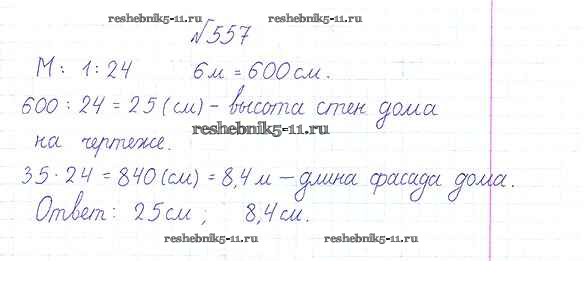 reshebnik5-11.ru reshebnik5-11.ru
№557
М: 1:24 6м = 600 см.
600 : 24 = 25 (см) - высота стен дома
reshebnik5-11.ru
на чертеже.
35 · 24 = 840 (см) = 8,4 м - длина фасада дома.
Ответ: 25 см; 8,4 см.
reshebnik5-11.ru reshebnik5-11.ru